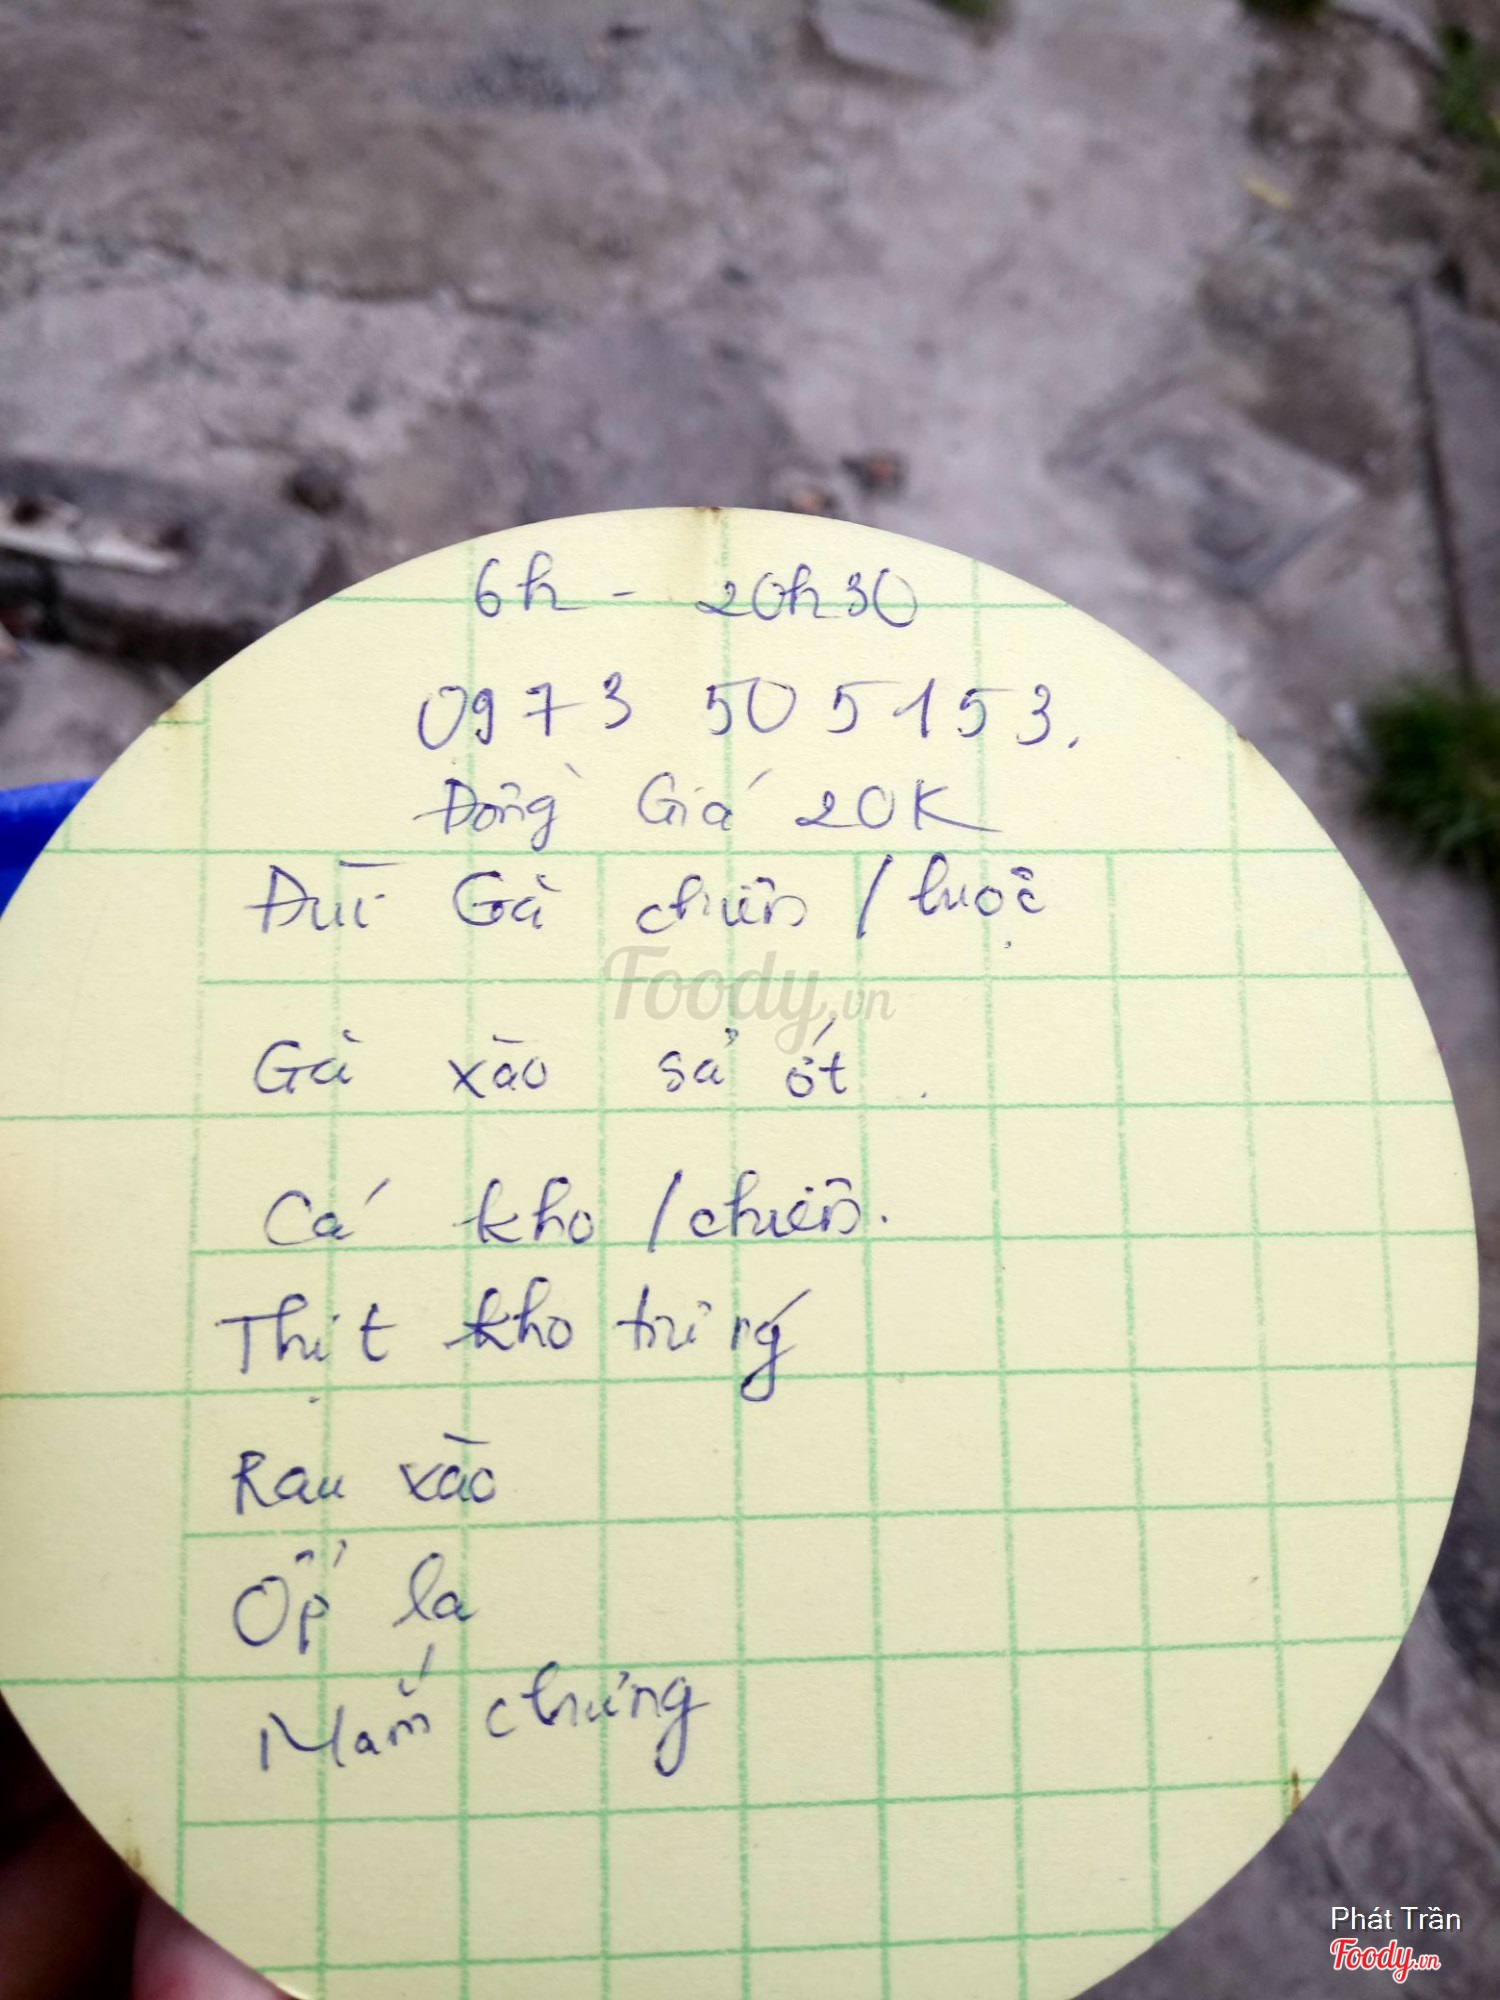 6h - 20h30
0973 505153.
Đồng Giá 20K
Đùi Gà chiên / luộc
Foody.vn
Gà xào sả ớt.
Cá kho / chiên.
Thịt kho trứng
Rau xào
Ốp la
Mắm chưng
Phát Trần
Foody.vn